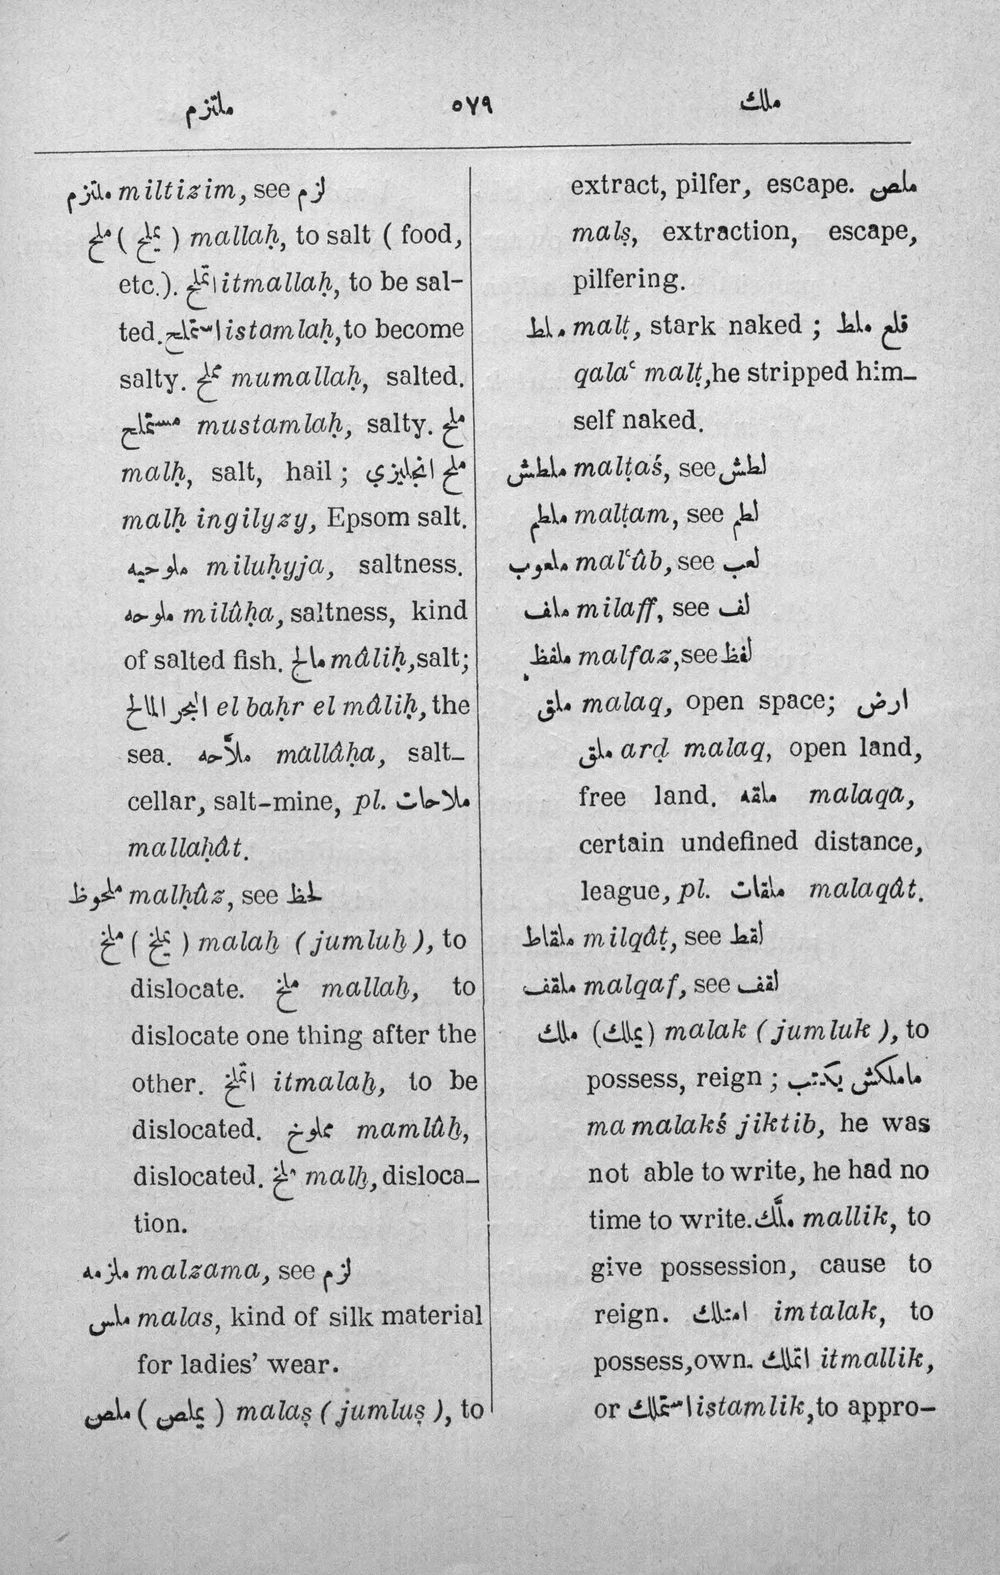 ملتزم ٥٧٩ ملك
ملتزم miltizim, see لزم
ملح ( يملح ) mallaḥ, to salt ( food,
etc.). اتملح itmallaḥ, to be sal-
ted. استملح istamlaḥ, to become
salty. مملح mumallaḥ, salted.
مستملح mustamlaḥ, salty. ملح
malḥ, salt, hail ; ملح انجليزي
malḥ ingilyzy, Epsom salt.
ملوحيه miluḥyja, saltness.
ملوحه milûḥa, saltness, kind
of salted fish. مالح mâliḥ, salt;
البحر المالح el baḥr el mâliḥ, the
sea. ملّاحه mallâḥa, salt-
cellar, salt-mine, pl. ملاحات
mallaḥât.
ملحوظ malḥûz, see لحظ
ملخ ( يملخ ) malaḫ ( jumluḫ ), to
dislocate. ملخ mallaḫ, to
dislocate one thing after the
other. اتملخ itmalaḫ, to be
dislocated. مملوخ mamlûḫ,
dislocated. ملخ malḫ, disloca-
tion.
ملزمه malzama, see لزم
ملس malas, kind of silk material
for ladies' wear.
ملص ( يملص ) malaṣ ( jumluṣ ), to
extract, pilfer, escape. ملص
malṣ, extraction, escape,
pilfering.
ملط malṭ, stark naked ; قلع ملط
qalaʿ malṭ, he stripped him-
self naked.
ملطش malṭaś, see لطش
ملطم malṭam, see لطم
ملعوب malʿûb, see لعب
ملف milaff, see لف
ملفظ malfaz, see لفظ
ملق malaq, open space; ارض
ملق arḍ malaq, open land,
free land. ملقه malaqa,
certain undefined distance,
league, pl. ملقات malaqât.
ملقاط milqâṭ, see لقط
ملقف malqaf, see لقف
ملك (يملك) malak ( jumluk ), to
possess, reign ; ماملكش يكتب
ma malakś jiktib, he was
not able to write, he had no
time to write. ملّك mallik, to
give possession, cause to
reign. امتلك imtalak, to
possess, own. اتملك itmallik,
or استملك istamlik, to appro-